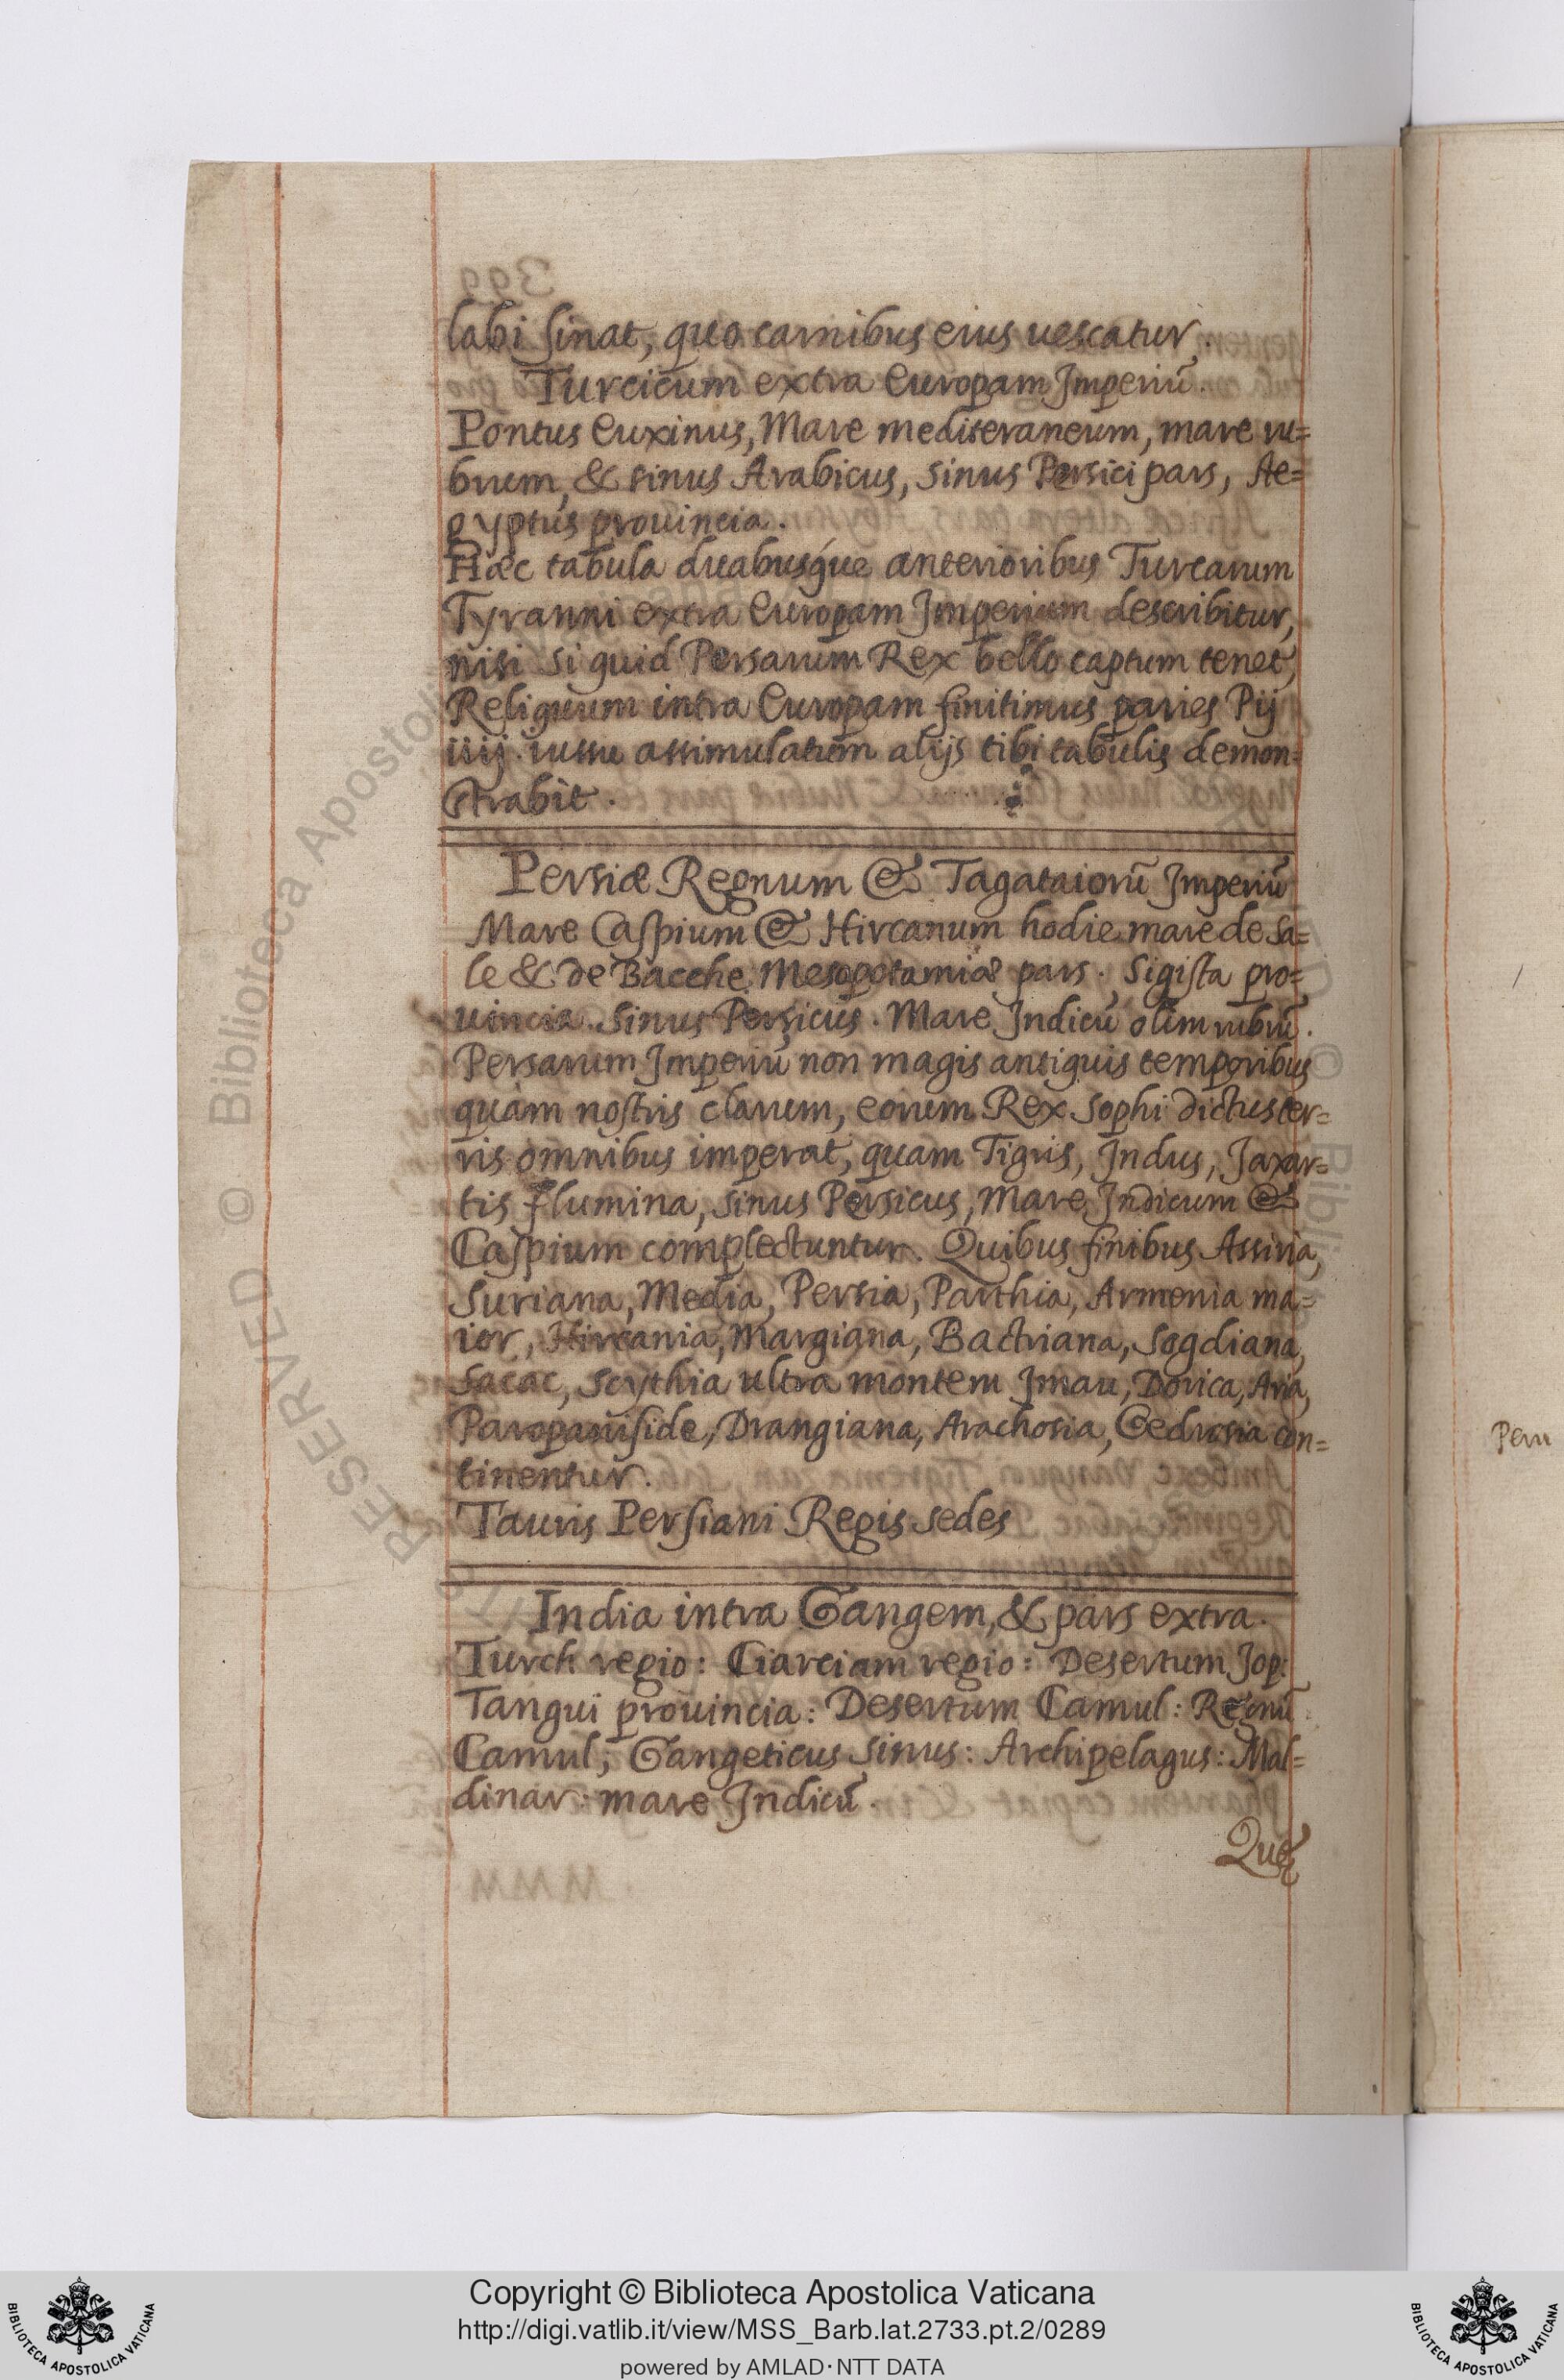 labi sinat, quo carnibus eius uescatur.
Turcicum extra Europam Imperiũ.
Pontus Euxinus, Mare mediteraneum, mare ru=
brum, & sinus Arabicus, sinus Persici pars, Ae=
gyptus prouincia.
Hæc tabula duabusq́ue anterioribus Turcarum
Tyranni extra Europam Imperium describitur,
nisi si quid Persarum Rex bello captum tenet,
Reliquum intra Europam finitimus paries Pij
iiij. iussu assimulatum alijs tibi tabulis demon=
strabit.
Persiæ Regnum & Tagataiorũ Imperiũ
Mare Caspium & Hircanum hodie mare de Sa=
le & de Bacche, Mesopotamiæ pars. Sigista pro=
uincia. Sinus Persicus. Mare Indicũ olim rubrũ.
Persarum Imperiũ non magis antiquis temporibus
quàm nostris clarum, eorum Rex Sophi dictus ter=
ris omnibus imperat, quam Tigris, Indus, Jaxar=
tis flumina, sinus Persicus, Mare Indicum &
Caspium complectuntur. Quibus finibus Assiria,
Suriana, Media, Persia, Parthia, Armenia ma=
ior, Hircania, Margiana, Bactriana, Sogdiana,
Sacac, Scythia ultra montem Imau, Dorica, Aria,
Paropaniside, Drangiana, Arachosia, Gedrosia con=
tinentur.
Tauris Persiani Regis sedes
India intra Gangem, & pars extra.
Turch regio: Ciarciam regio: Desertum Jop:
Tangui prouincia: Desertum Camul: Regnũ
Camul; Gangeticus Sinus: Archipelagus: Mal=
dinar: mare Indicũ.
Quę
Peru
RESERVED © Biblioteca Apostoli
© Bibliote
Copyright © Biblioteca Apostolica Vaticana
http://digi.vatlib.it/view/MSS_Barb.lat.2733.pt.2/0289
powered by AMLAD·NTT DATA
BIBLIOTECA APOSTOLICA VATICANA
BIBLIOTECA APOSTOLICA VATICANA